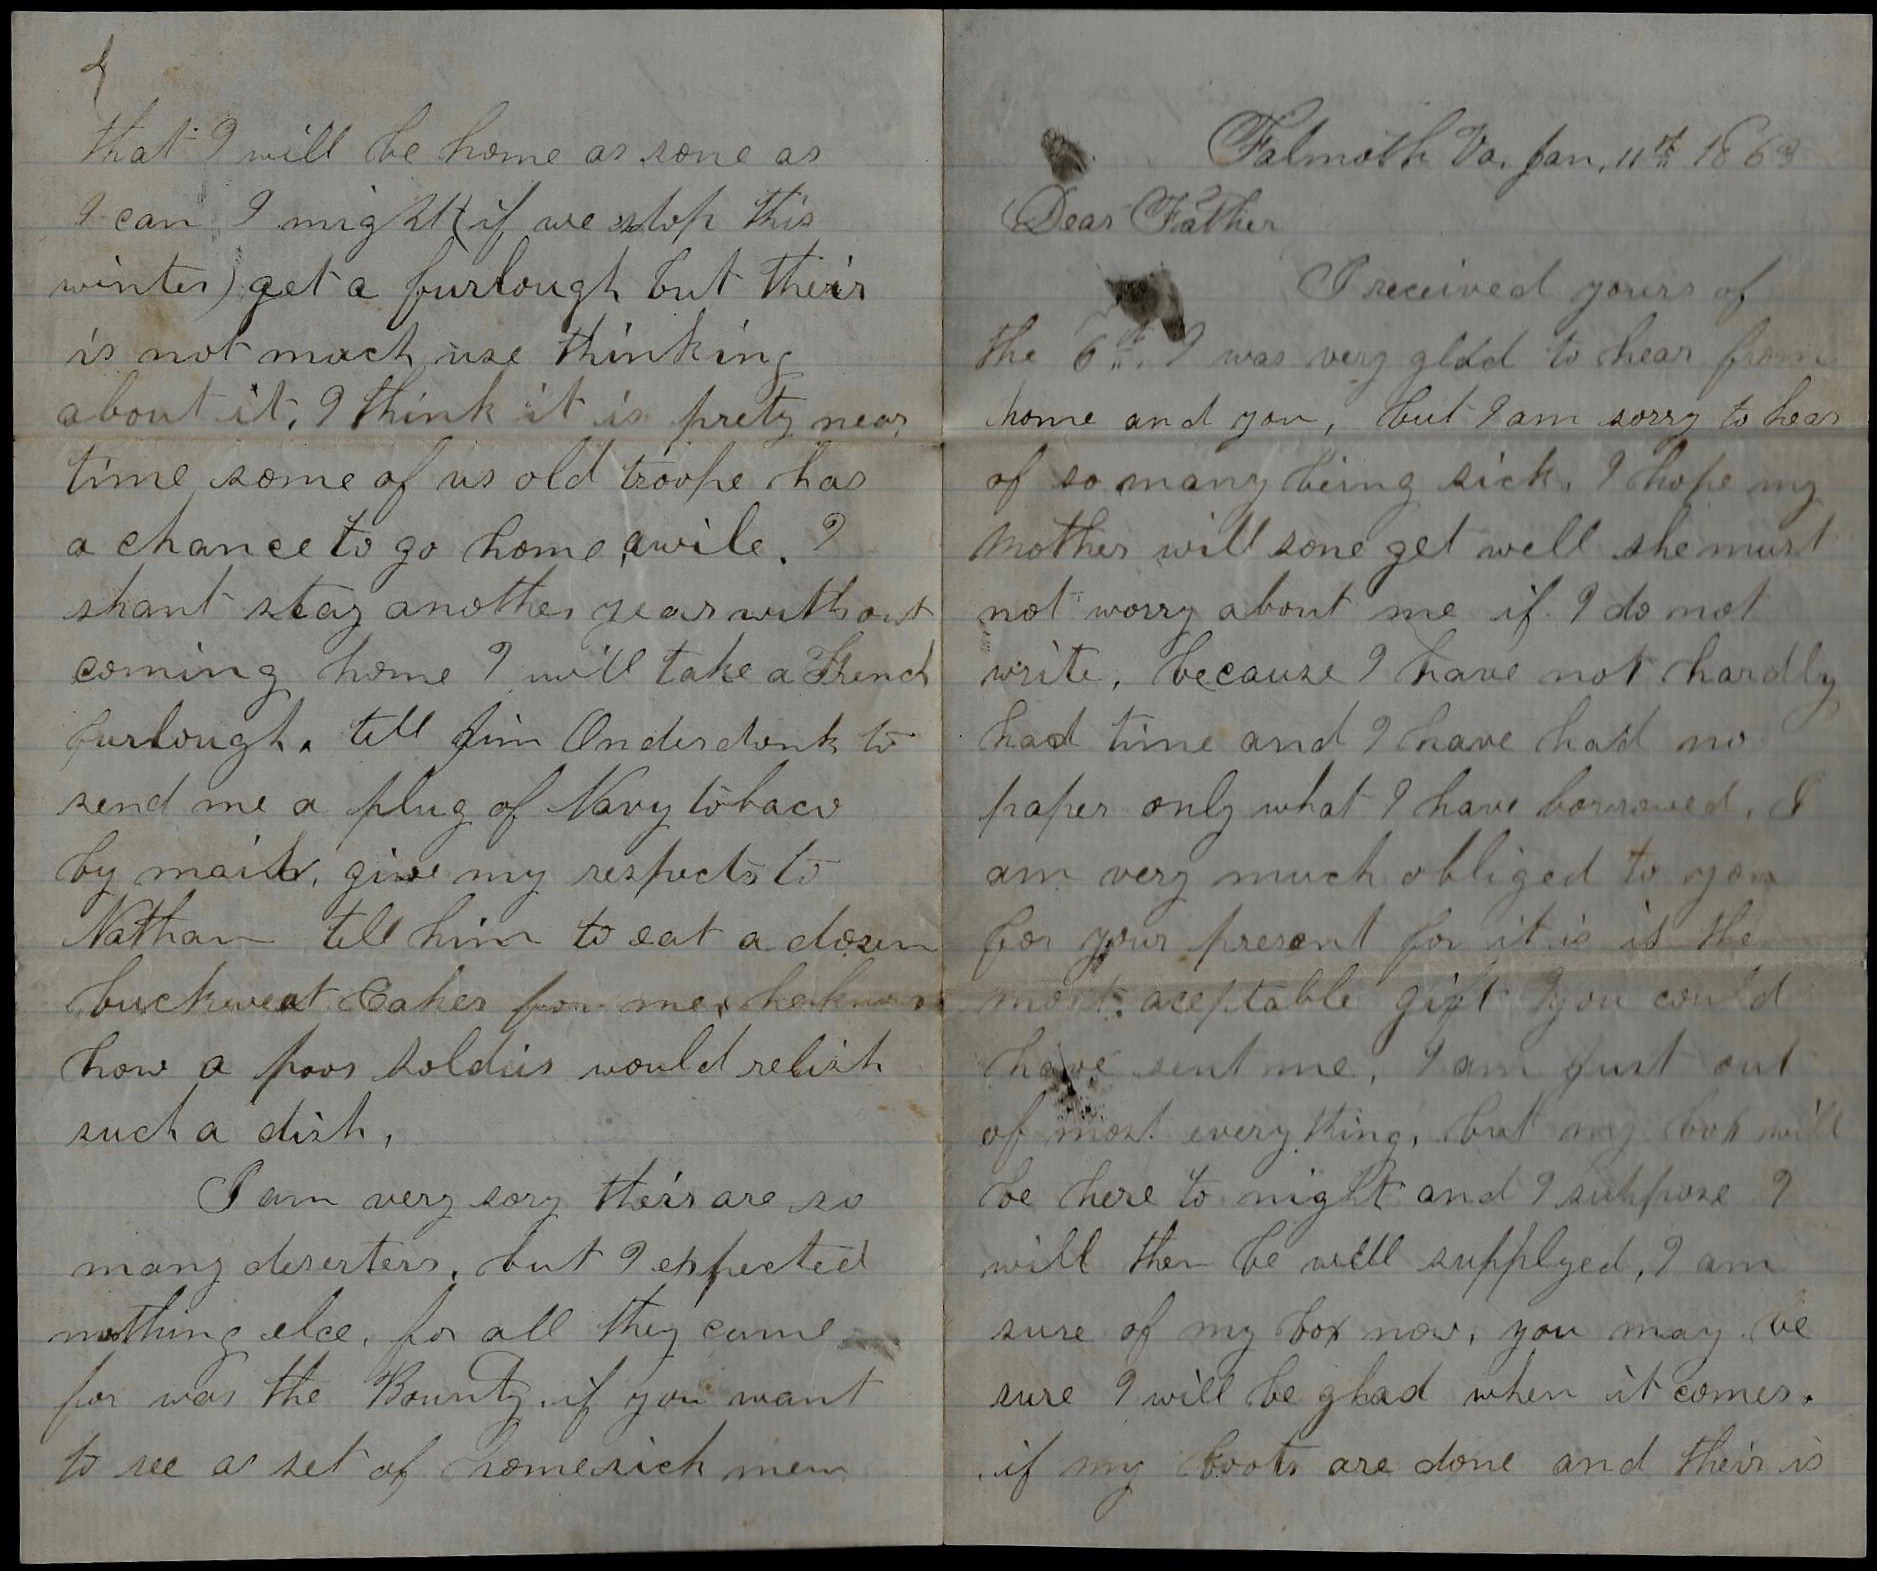 Falmoth Va. Jan. 11th 1863
Dear Father
I received yours of
the 6th. I was very glad to hear from
home and you, but I am sorry to hear
of so many being sick. I hope my
Mother will sone get well she must
not worry about me if I do not
write, because I have not hardly
had time and I have had no
paper only what I have borrowed. I
am very much obliged to you
for your present for it is is the
most aceptable gift you could
have sent me, I am just out
of most every thing, but my box will
be here to night and I suppose I
will then be well supplyed, I am
sure of my box now, you may be
sure I will be glad when it comes.
if my boots are done and their is
4
that I will be home as sone as
I can I might (if we stop this
winter) get a furlough but their
is not much use thinking
about it. I think it is prety near
time some of us old troope has
a chance to go home awile. I
shant stay another year without
coming home I will take a French
furlough. tell Jim Onderdonk to
send me a plug of Navy tobaco
by mail, give my respects to
Nathan tell him to eat a dozen
buckweat Cakes for me, he knows
how a poor soldier would relish
such a dish,
I am very sory their are so
many deserters, but I expected
nothing else, for all they came
for was the Bounty. if you want
to see a set of homesick men